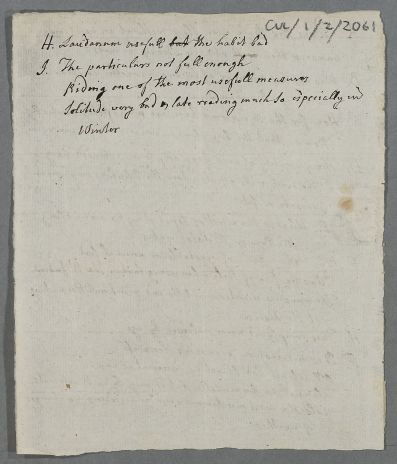 CUL/1/2/2061
H. Laudanum usefull but the habit bad
I. The particulars not full enough
Riding one of the most usefull measures
Solitude very bad & late reading much so especially in
Winter